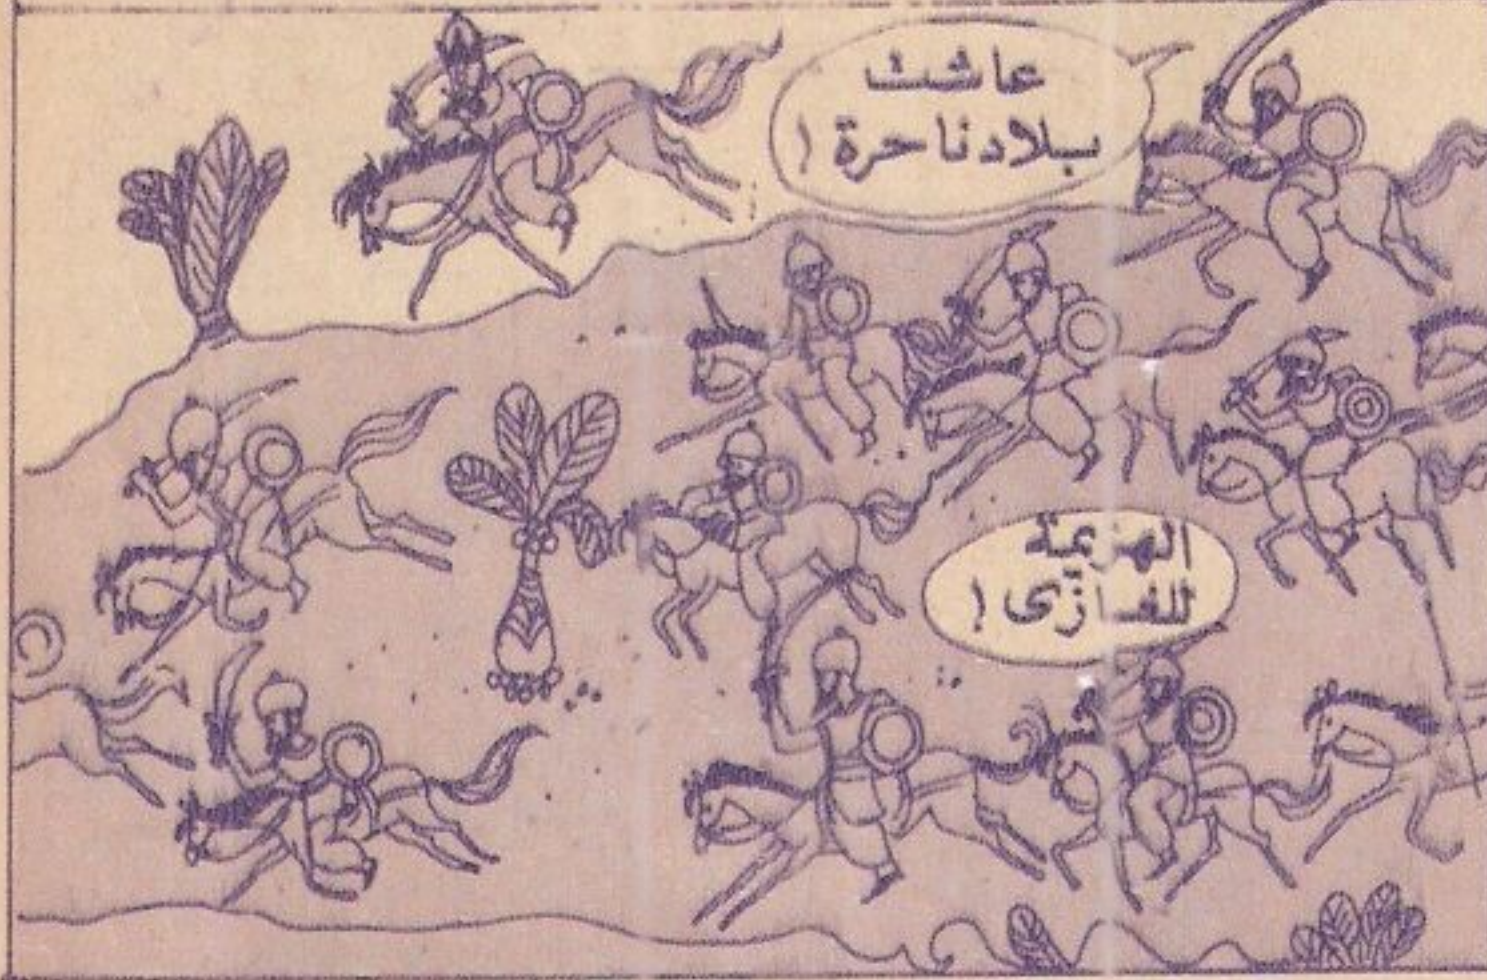 عاشت
بلادنا حرة !
الهزيمة
للغازى !